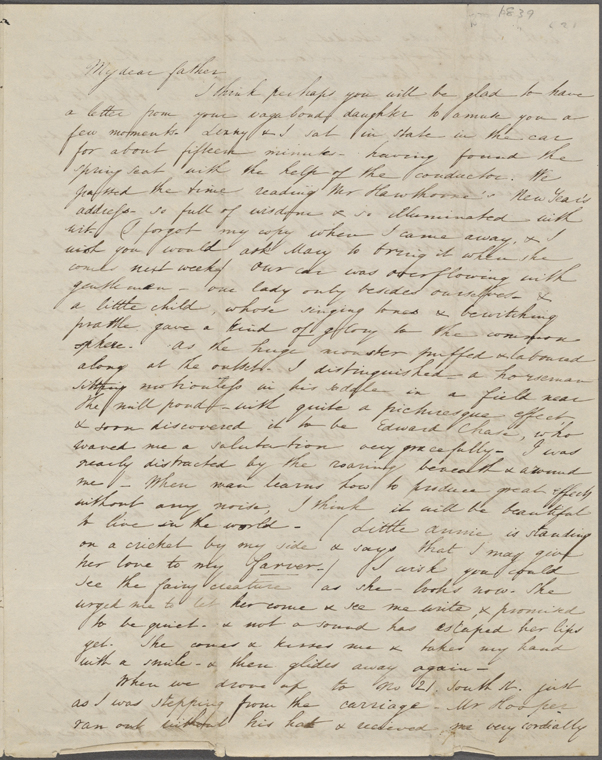 1839
My dear father
I think perhaps you will be glad to have
a letter from your vagabond daughter to amuse you a
few moments. Lenny & I sat in state in the car
for about fifteen minutes - having found the
spring seat with the help of the conductor. We
passed the time reading Mr Hawthorne's New Year's
address - so full of wisdom & so illuminated with
wit. (I forgot my copy when I came away, & I
wish you would ask Mary to bring it when she
comes next week) Our car was overflowing with
gentlemen - one lady only besides ourselves - &
a little child, whose singing tones & bewitching
prattle gave a kind of glory to the common
sphere. As the huge monster puffed & laboured
along at the outset, I distinguished - a horseman
sitting motionless in his saddle in a field near
the mill pond - with quite a picturesque effect,
& soon discovered it to be Edward Chase, who
waved me a salutation very gracefully - I was
nearly distracted by the roaring beneath & around
me - When man learns how to produce great effects
without any noise, I think it will be beautiful
to live in the world - (Little Annie is standing
on a cricket by my side & says that I may give
her love to my farver.) I wish you could
see the fairy creature as she looks now. She
urged me to let her come & see me write, & promised
to be quiet - & not a sound has escaped her lips
yet. She comes & kisses me & takes my hand
with a smile - & then glides away again -
When we drove up to No 21 South St. just
as I was stepping from the carriage - Mr Hooper
ran out without his hat & received me very cordially